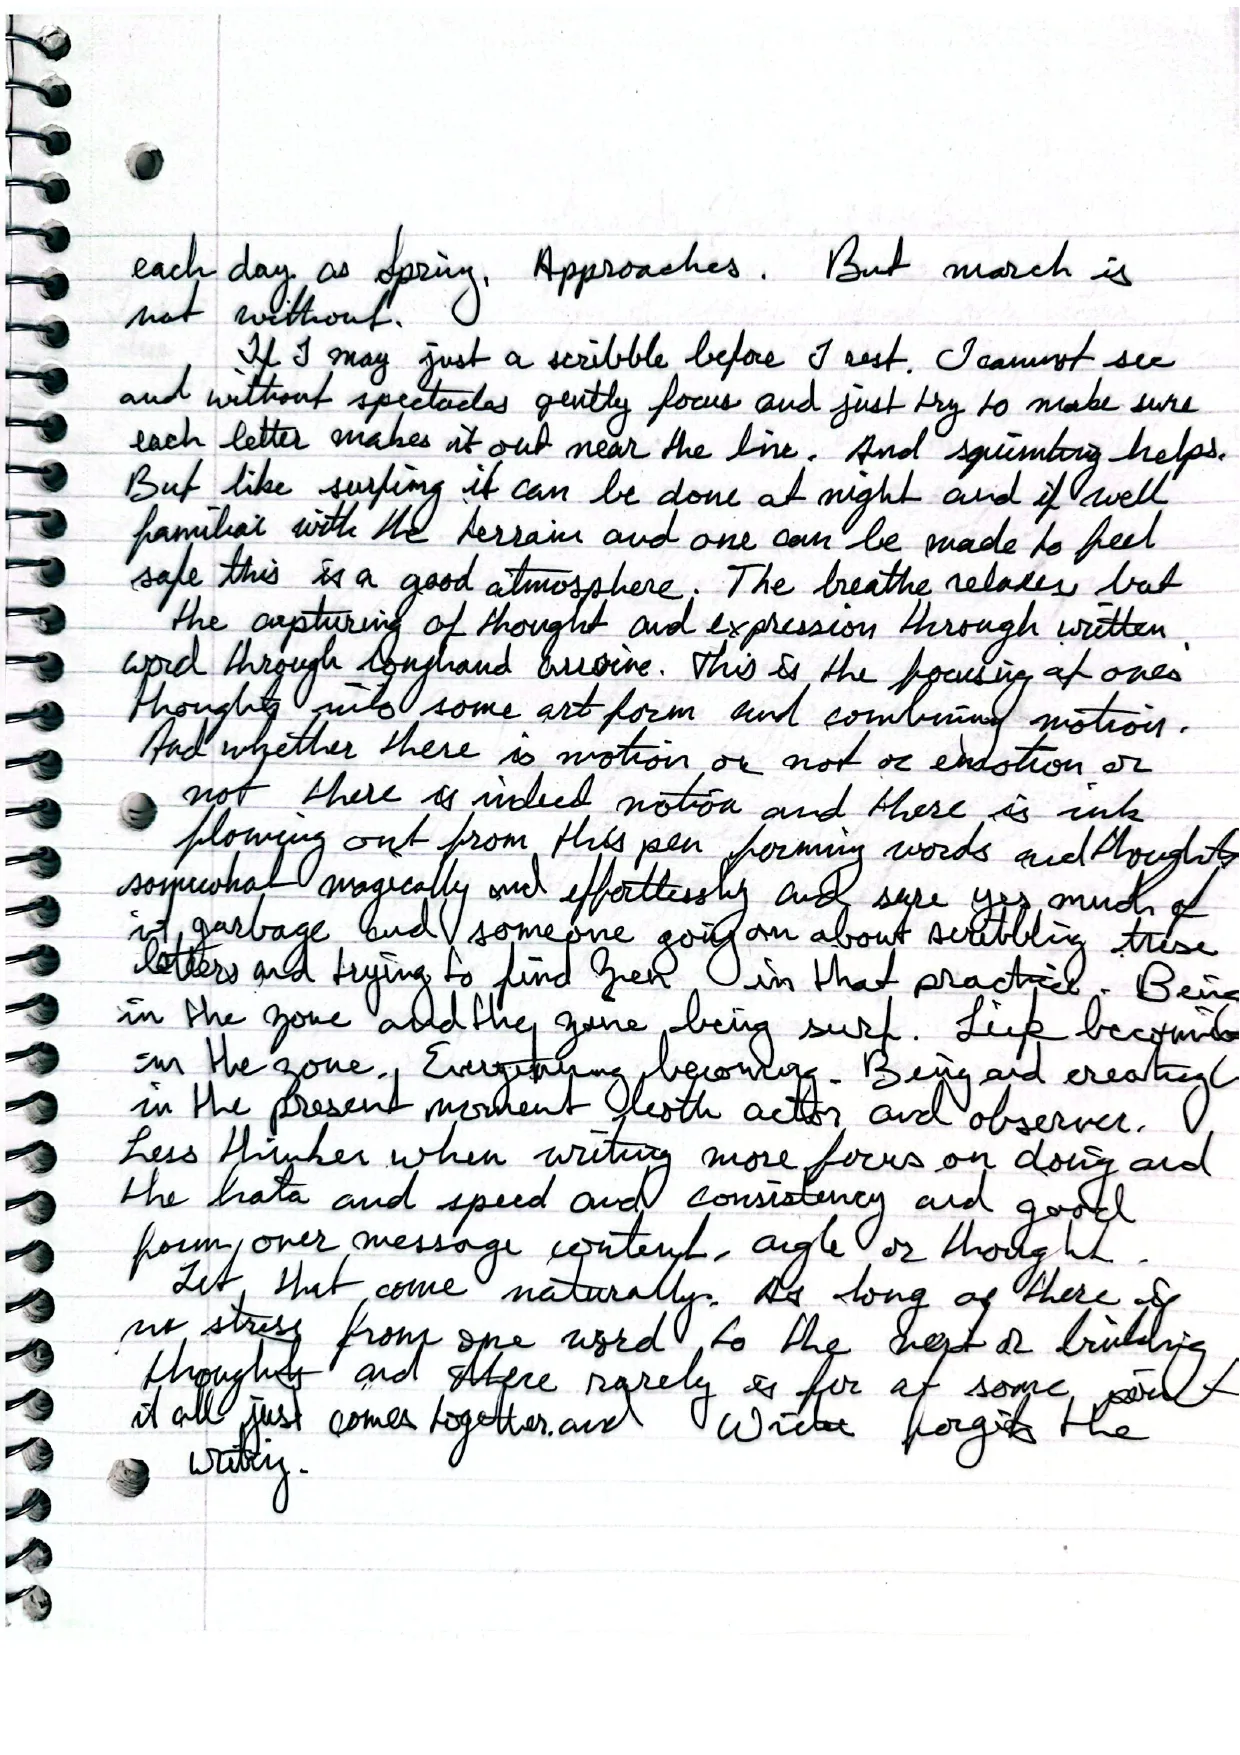 each day as Spring. Approaches. But march is
not without.
If I may just a scribble before I rest. I cannot see
and without spectacles gently focus and just try to make sure
each letter makes it out near the line. And squinting helps.
But like surfing it can be done at night and if well
familiar with the terrain and one can be made to feel
safe this is a good atmosphere. The breathe relaxes but
the capturing of thought and expression through written
word through longhand cursive. This is the focusing of ones
thoughts into some art form and combining motion.
And whether there is motion or not or emotion or
not there is indeed notion and there is ink
flowing out from this pen forming words and thoughts
somewhat magically and effortlessly and sure yes much of
it garbage and someone going on about scribbling these
letters and trying to find Zen in that practice. Being
in the zone and the zone being surf. Surf becoming
in the zone. Everything becoming. Being and creating
in the present moment both actor and observer.
Less thinker when writing more focus on doing and
the kata and speed and consistency and good
form over message content, angle or thought.
Let that come naturally. As long as there is
no stress from one word to the next or linking
thoughts and there rarely is for at some point
it all just comes together. and Writer forgets the
writing.